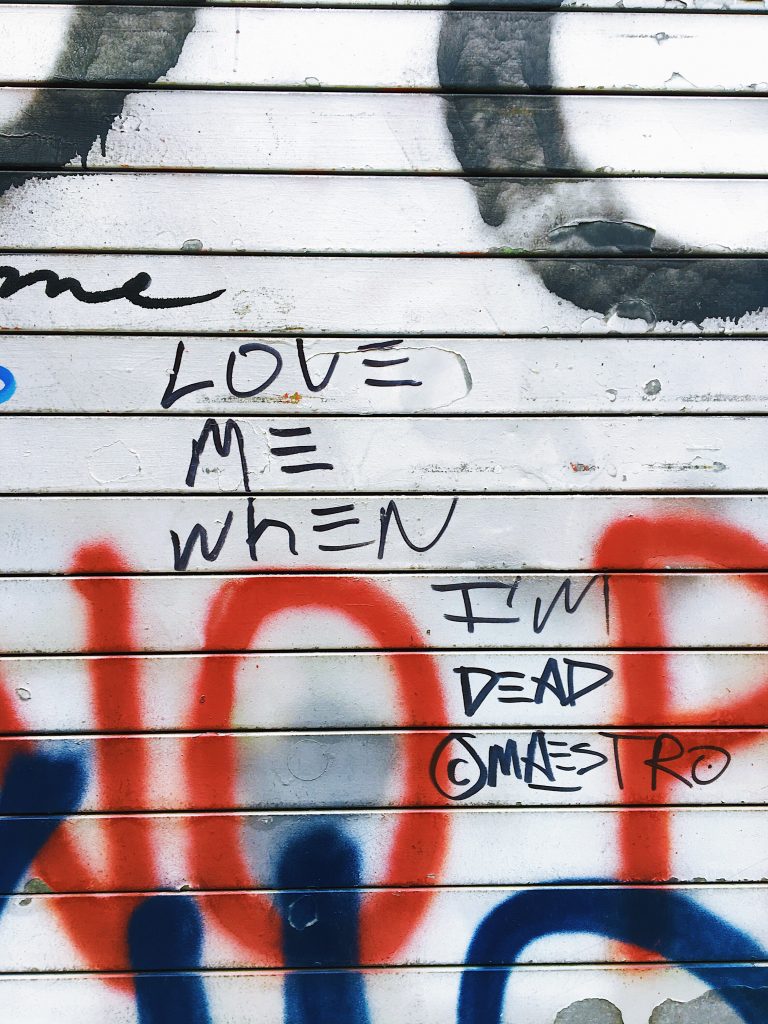 me
LOVE
ME
WhEN
I'M
DEAD
©MAESTRO
NOP